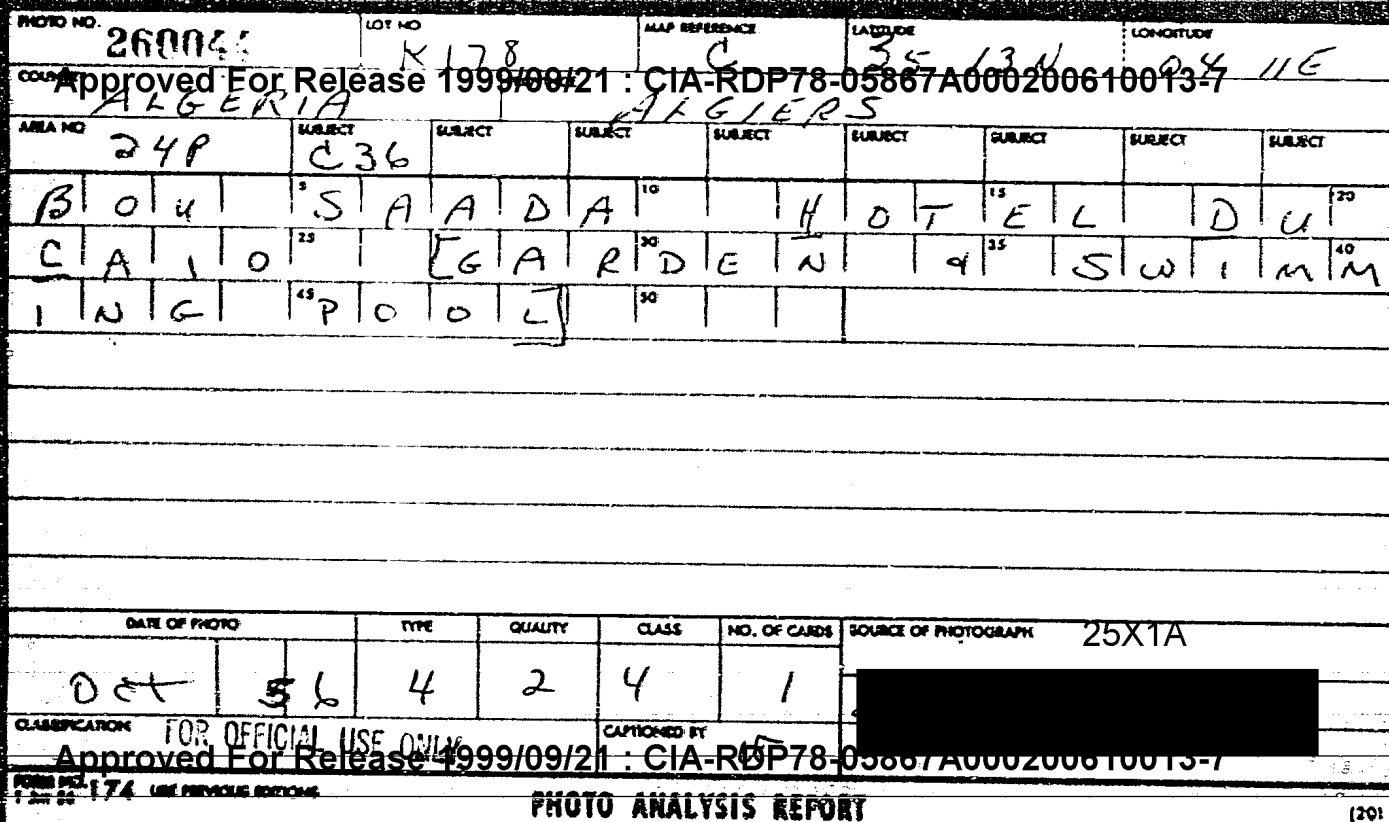 PHOTO NO. LOT NO MAP REFERENCE LATITUDE LONGITUDE
K178 C 35 13N 04 11E
Approved For Release 1999/09/21 : CIA-RDP78-05867A000200610013-7
ALGERIA ALGIERS
AREA NO SUBJECT SUBJECT SUBJECT SUBJECT SUBJECT SUBJECT SUBJECT SUBJECT
24P C36
5 10 15 20
BOU SAADA HOTEL DU
25 30 35 40
CAIO [GARDEN & SWIMM
45 50
ING POOL]
DATE OF PHOTO TYPE QUALITY CLASS NO. OF CARDS SOURCE OF PHOTOGRAPH 25X1A
Oct 56 4 2 4 1
CLASSIFICATION FOR OFFICIAL USE ONLY CAPTIONED BY
Approved For Release 1999/09/21 : CIA-RDP78-05867A000200610013-7
FORM NO. 174 USE PREVIOUS EDITIONS
PHOTO ANALYSIS REPORT (20)